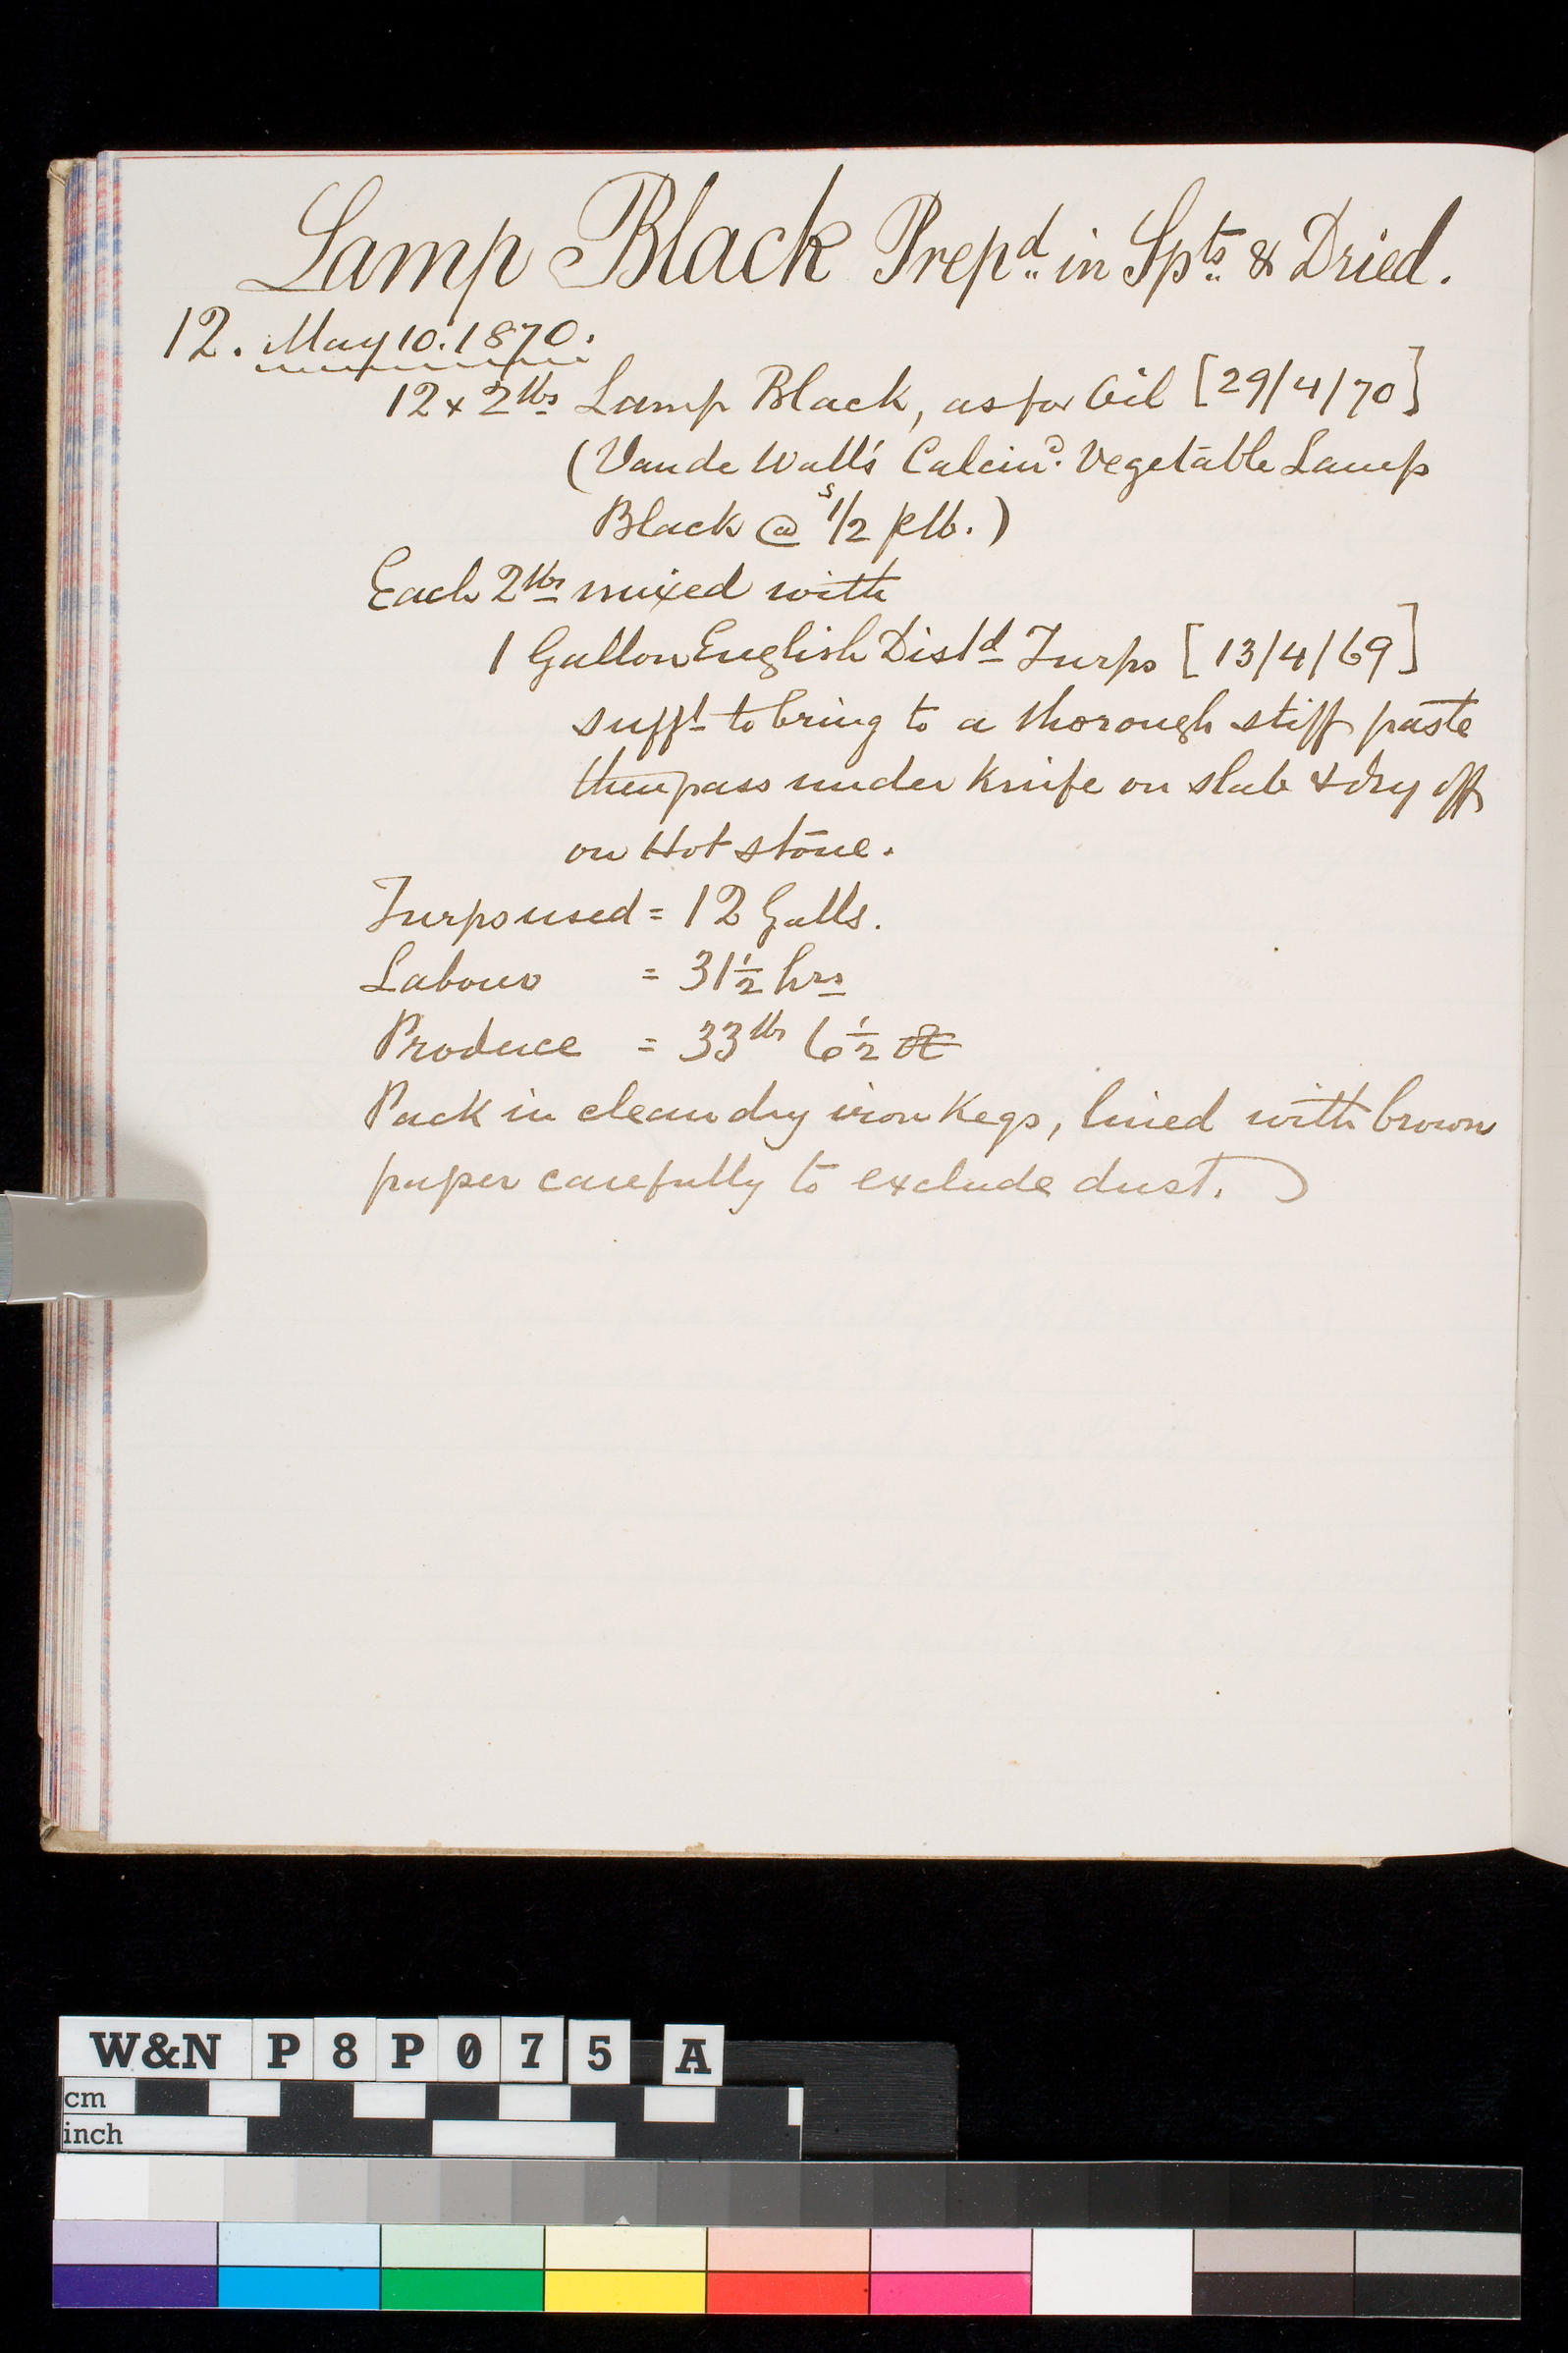 Lamp Black Prepd in Spts & Dried.
12. May 10. 1870.
12 x 2lbs Lamp Black, as for Oil [29/4/70]
(Van de Wall's Calcind. Vegetable Lamp
Black @ s1/2 p lb.)
Each 2lbs mixed with
1 Gallon English Distd Turps [13/4/69]
sufft to bring to a thorough stiff paste
then pass under Knife on slab & dry off
on Hot stone.
Turps used = 12 Galls.
Labour = 31½ hrs
Produce = 33lbs 6½ oz
Pack in clean dry iron Kegs, lined with brown
paper carefully to exclude dust.
W&N P8P075 A
cm
inch